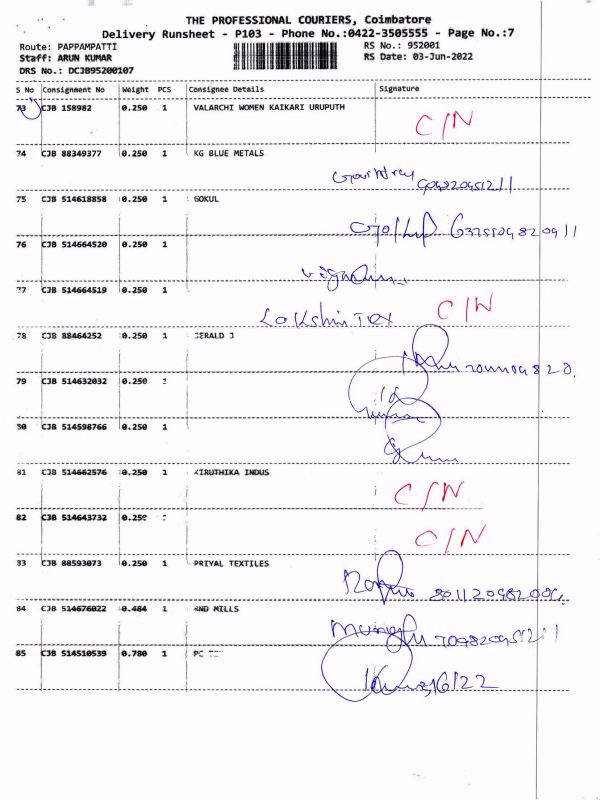 THE PROFESSIONAL COURIERS, Coimbatore
Delivery Runsheet - P103 - Phone No.:0422-3505555 - Page No.:7
Route: PAPPAMPATTI RS No.: 952001
Staff: ARUN KUMAR RS Date: 03-Jun-2022
DRS No.: DCJB95200107
S No Consignment No Weight PCS Consignee Details Signature
73 CJB 158982 0.250 1 VALARCHI WOMEN KAIKARI URUPUTH
C/N
74 CJB 88349377 0.250 1 KG BLUE METALS
75 CJB 514618858 0.250 1 GOKUL
76 CJB 514664520 0.250 1
77 CJB 514664519 0.250 1
Lakshmi Tex C/N
78 CJB 88464252 0.250 1 GERALD J
79 CJB 514632032 0.250
80 CJB 514598766 0.250 1
81 CJB 514662576 0.250 1 KIRUTHIKA INDUS
C/N
82 CJB 514643732 0.250
C/N
83 CJB 88593073 0.250 1 PRIYAL TEXTILES
84 CJB 514676022 0.484 1 MILLS
85 CJB 514510539 0.780 1 PC
3/6/22